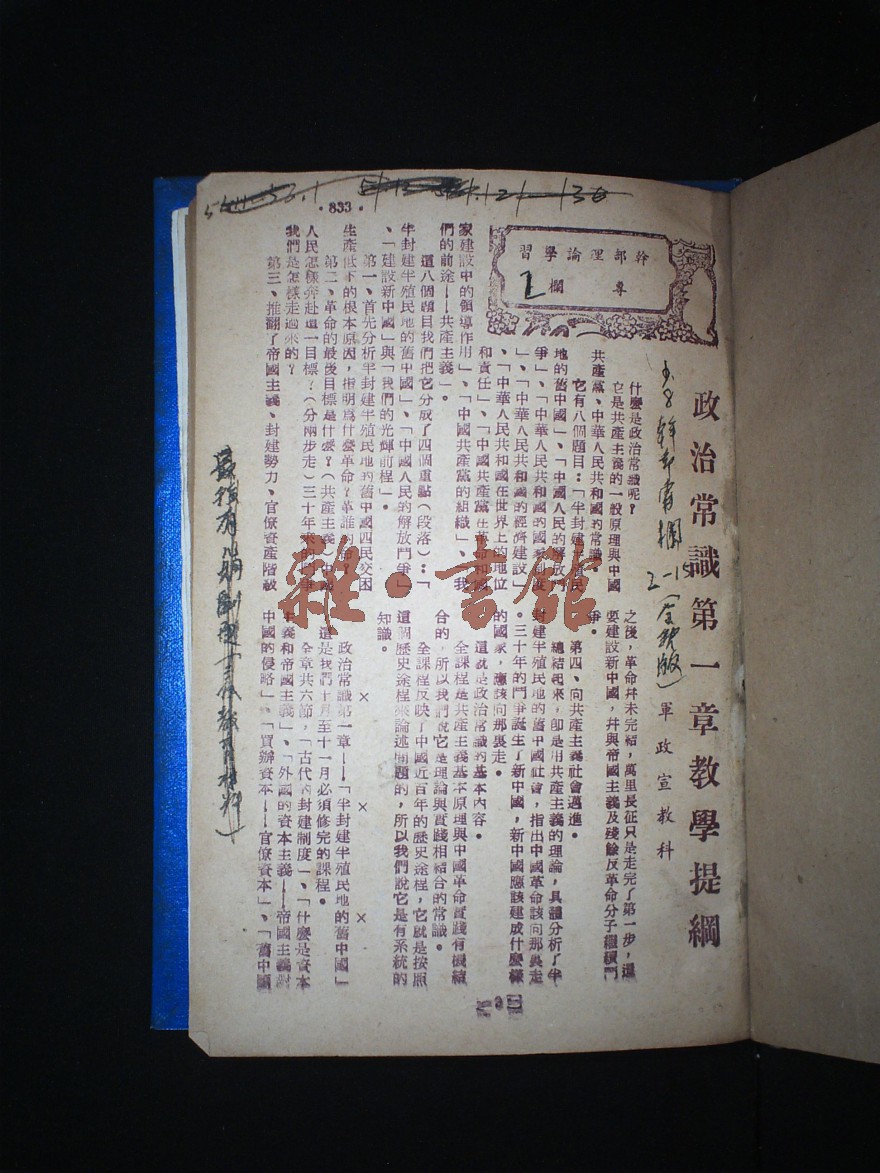 ·833·
幹部理論學習
專欄
政治常識第一章教學提綱
軍政宣教科
什麼是政治常識呢？
它是共產主義的一般原理與中國
共產黨、中華人民共和國的常識。
它有八個題目：「半封建半殖民
地的舊中國」、「中國人民的解放鬥
爭」、「中華人民共和國的國家制度
」、「中華人民共和國的經濟建設」
、「中華人民共和國在世界上的地位
和責任」、「中國共產黨在革命和國
家建設中的領導作用」、「中國共產黨的組織」、「我
們的前途——共產主義」。
這八個題目我們把它分成了四個重點(段落)：「
半封建半殖民地的舊中國」、「中國人民的解放鬥爭」
、「建設新中國」與「我們的光輝前程」。
第一、首先分析半封建半殖民地的舊中國四民交困
生產低下的根本原因，指明為什麼革命？革誰的命？
第二、革命的最後目標是什麼？(共產主義)中國
人民怎樣奔赴這一目標？(分兩步走)三十年來的鬥爭
我們是怎樣走過來的？
第三、推翻了帝國主義、封建勢力、官僚資產階級
之後，革命幷未完結，萬里長征只是走完了第一步，還
要建設新中國，幷與帝國主義及殘餘反革命分子繼續鬥
爭。
第四、向共產主義社會邁進。
總結起來，卽是用共產主義的理論，具體分析了半
封建半殖民地的舊中國社會，指出中國革命該向那裏走
。三十年的鬥爭誕生了新中國，新中國應該建成什麼樣
的國家，應該向那裏走。
這就是政治常識的基本內容。
全課程是共產主義基本原理與中國革命實踐有機結
合的，所以我們說它是理論與實踐相結合的常識。
全課程反映了中國近百年的歷史途程，它就是按照
這個歷史途程來論述問題的，所以我們說它是有系統的
知識。
×　×　×
政治常識第一章——「半封建半殖民地的舊中國」
這是我們十月至十一月必須修完的課程。
全章共六節，「古代的封建制度」、「什麼是資本
主義和帝國主義」、「外國的資本主義——帝國主義對
中國的侵略」、「買辦資本——官僚資本」、「舊中國
雜·書館